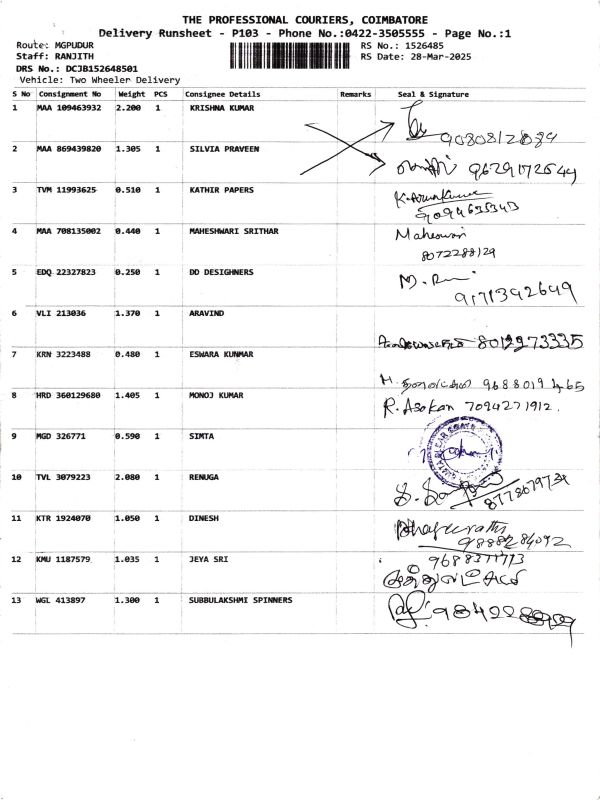 THE PROFESSIONAL COURIERS, COIMBATORE
Delivery Runsheet - P103 - Phone No.:0422-3505555 - Page No.:1
Route: MGPUDUR RS No.: 1526485
Staff: RANJITH RS Date: 28-Mar-2025
DRS No.: DCJB152648501
Vehicle: Two Wheeler Delivery
S No Consignment No Weight PCS Consignee Details Remarks Seal & Signature
1 MAA 109463932 2.200 1 KRISHNA KUMAR
2 MAA 869439820 1.305 1 SILVIA PRAVEEN
3 TVM 11993625 0.510 1 KATHIR PAPERS
4 MAA 708135002 0.440 1 MAHESHWARI SRITHAR Maheswari
8072288129
5 EDQ 22327823 0.250 1 DD DESIGHNERS
9171342649
6 VLI 213036 1.370 1 ARAVIND
8012973335
7 KRN 3223488 0.480 1 ESWARA KUNMAR
9688019465
8 HRD 360129680 1.405 1 MONOJ KUMAR R. Asokan 7094271912.
9 MGD 326771 0.590 1 SIMTA
10 TVL 3079223 2.080 1 RENUGA
11 KTR 1924070 1.050 1 DINESH
12 KMU 1187579 1.035 1 JEYA SRI
13 WGL 413897 1.300 1 SUBBULAKSHMI SPINNERS